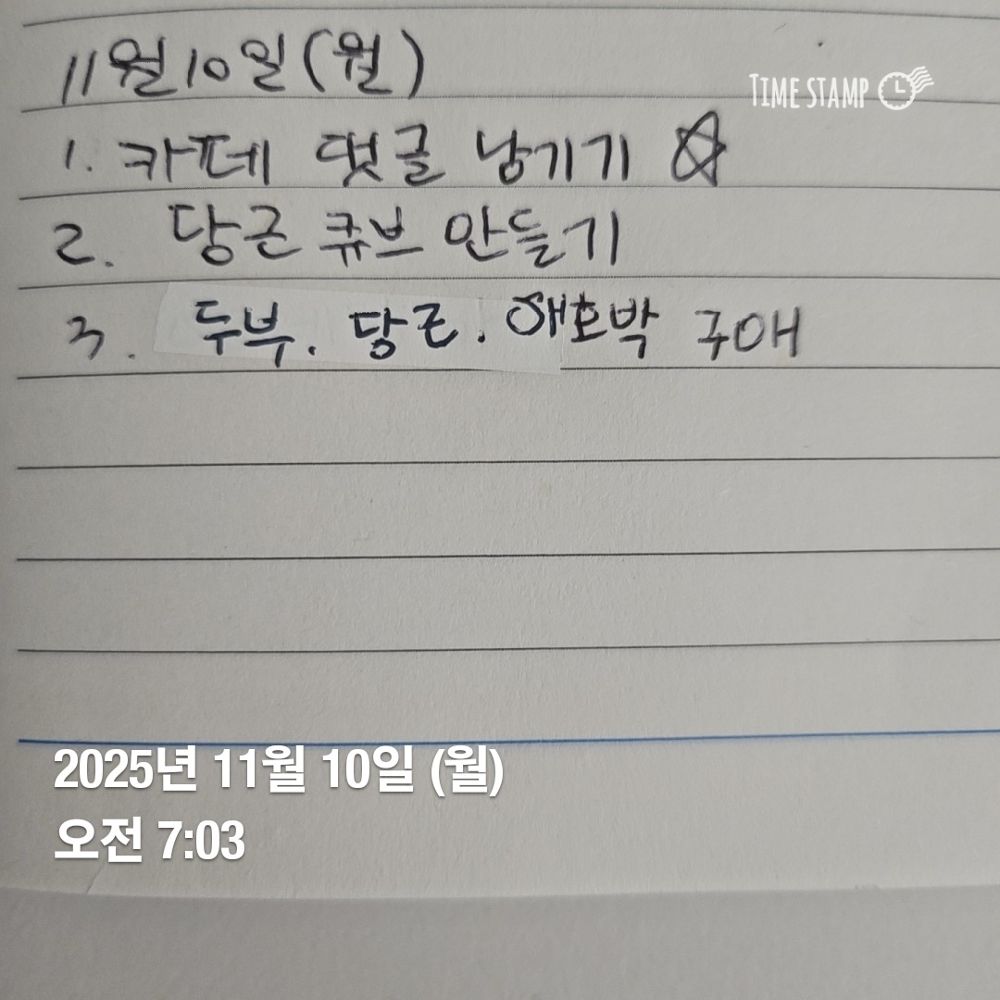 11월 10일 (월)
TIME STAMP
1. 카페 댓글 남기기 ☆
2. 당근 큐브 만들기
3. 두부. 당근. 애호박 구애
2025년 11월 10일 (월)
오전 7:03